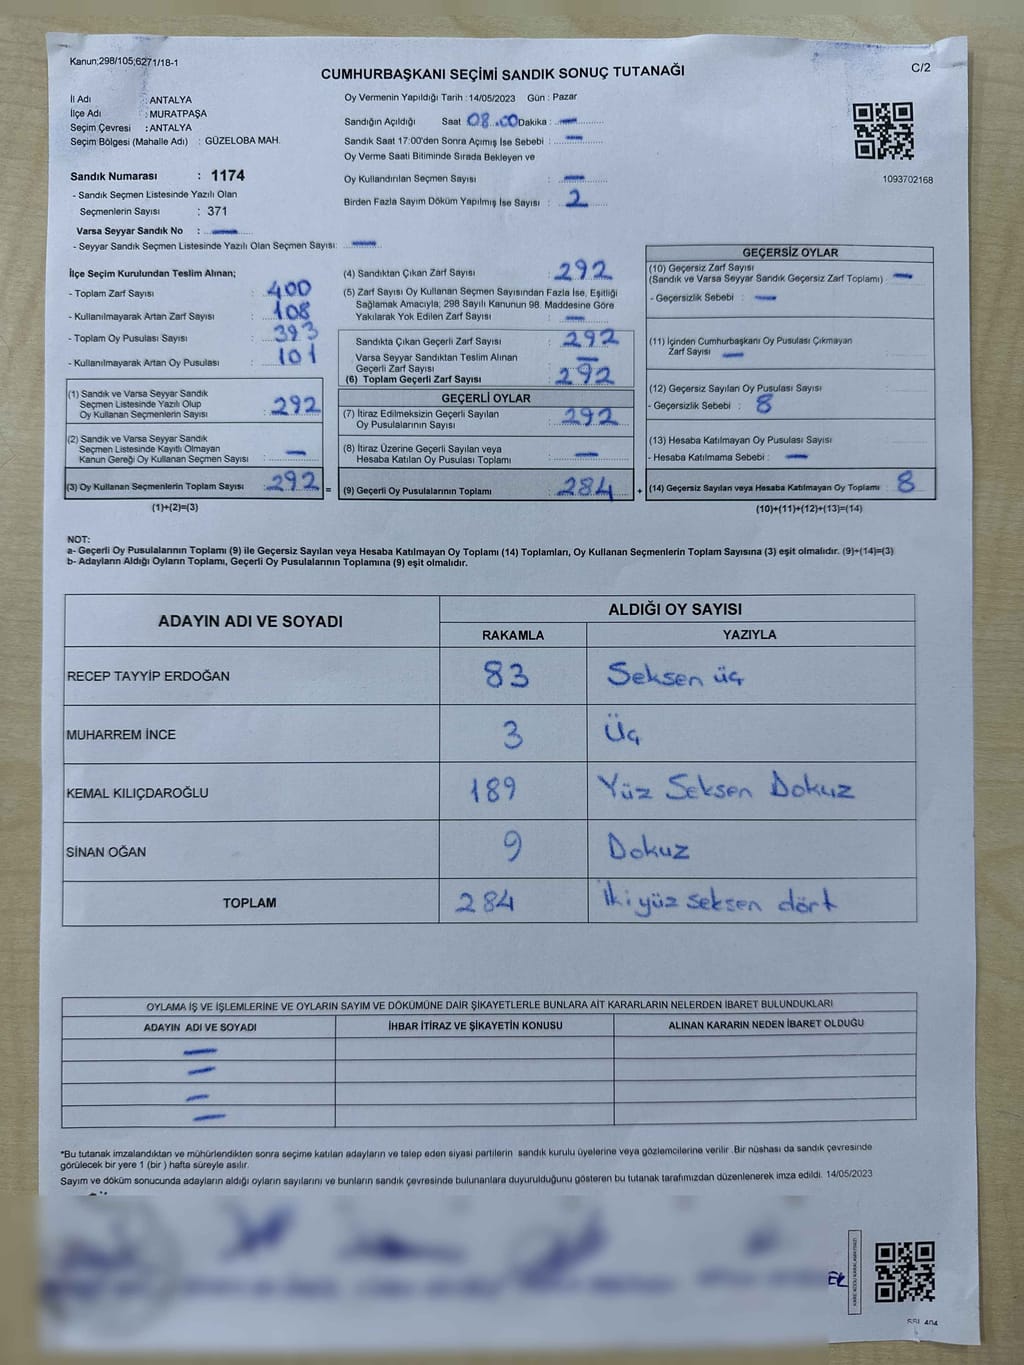 Kanun;298/105;6271/18-1
CUMHURBAŞKANI SEÇİMİ SANDIK SONUÇ TUTANAĞI
C/2
İl Adı : ANTALYA
İlçe Adı : MURATPAŞA
Seçim Çevresi : ANTALYA
Seçim Bölgesi (Mahalle Adı) : GÜZELOBA MAH.
Sandık Numarası : 1174
- Sandık Seçmen Listesinde Yazılı Olan
Seçmenlerin Sayısı : 371
Varsa Seyyar Sandık No : —
- Seyyar Sandık Seçmen Listesinde Yazılı Olan Seçmen Sayısı: —
Oy Vermenin Yapıldığı Tarih : 14/05/2023 Gün : Pazar
Sandığın Açıldığı Saat 08.00 Dakika : —
Sandık Saat 17:00'den Sonra Açımış İse Sebebi : —
Oy Verme Saati Bitiminde Sırada Bekleyen ve
Oy Kullandırılan Seçmen Sayısı : —
Birden Fazla Sayım Döküm Yapılmış İse Sayısı : 2
1093702168
İlçe Seçim Kurulundan Teslim Alınan;
- Toplam Zarf Sayısı : 400
- Kullanılmayarak Artan Zarf Sayısı : 108
- Toplam Oy Pusulası Sayısı : 393
- Kullanılmayarak Artan Oy Pusulası : 101
(1) Sandık ve Varsa Seyyar Sandık
Seçmen Listesinde Yazılı Olup
Oy Kullanan Seçmenlerin Sayısı : 292
(2) Sandık ve Varsa Seyyar Sandık
Seçmen Listesinde Kayıtlı Olmayan
Kanun Gereği Oy Kullanan Seçmen Sayısı : —
(3) Oy Kullanan Seçmenlerin Toplam Sayısı : 292 =
(1)+(2)=(3)
(4) Sandıktan Çıkan Zarf Sayısı : 292
(5) Zarf Sayısı Oy Kullanan Seçmen Sayısından Fazla İse, Eşitliği
Sağlamak Amacıyla, 298 Sayılı Kanunun 98. Maddesine Göre
Yakılarak Yok Edilen Zarf Sayısı : —
Sandıkta Çıkan Geçerli Zarf Sayısı : 292
Varsa Seyyar Sandıktan Teslim Alınan
Geçerli Zarf Sayısı : —
(6) Toplam Geçerli Zarf Sayısı : 292
GEÇERLİ OYLAR
(7) İtiraz Edilmeksizin Geçerli Sayılan
Oy Pusulalarının Sayısı : 292
(8) İtiraz Üzerine Geçerli Sayılan veya
Hesaba Katılan Oy Pusulası Toplamı : —
(9) Geçerli Oy Pusulalarının Toplamı : 284 +
GEÇERSİZ OYLAR
(10) Geçersiz Zarf Sayısı
(Sandık ve Varsa Seyyar Sandık Geçersiz Zarf Toplamı) —
- Geçersizlik Sebebi : —
(11) İçinden Cumhurbaşkanı Oy Pusulası Çıkmayan
Zarf Sayısı —
(12) Geçersiz Sayılan Oy Pusulası Sayısı
- Geçersizlik Sebebi : 8
(13) Hesaba Katılmayan Oy Pusulası Sayısı
- Hesaba Katılmama Sebebi : —
(14) Geçersiz Sayılan veya Hesaba Katılmayan Oy Toplamı : 8
(10)+(11)+(12)+(13)=(14)
NOT:
a- Geçerli Oy Pusulalarının Toplamı (9) ile Geçersiz Sayılan veya Hesaba Katılmayan Oy Toplamı (14) Toplamları, Oy Kullanan Seçmenlerin Toplam Sayısına (3) eşit olmalıdır. (9)+(14)=(3)
b- Adayların Aldığı Oyların Toplamı, Geçerli Oy Pusulalarının Toplamına (9) eşit olmalıdır.
ADAYIN ADI VE SOYADI
ALDIĞI OY SAYISI
RAKAMLA YAZIYLA
RECEP TAYYİP ERDOĞAN 83 Seksen üç
MUHARREM İNCE 3 Üç
KEMAL KILIÇDAROĞLU 189 Yüz Seksen Dokuz
SİNAN OĞAN 9 Dokuz
TOPLAM 284 İki yüz seksen dört
OYLAMA İŞ VE İŞLEMLERİNE VE OYLARIN SAYIM VE DÖKÜMÜNE DAİR ŞİKAYETLERLE BUNLARA AİT KARARLARIN NELERDEN İBARET BULUNDUKLARI
ADAYIN ADI VE SOYADI İHBAR İTİRAZ VE ŞİKAYETİN KONUSU ALINAN KARARIN NEDEN İBARET OLDUĞU
—
—
—
—
*Bu tutanak imzalandıktan ve mühürlendikten sonra seçime katılan adayların ve talep eden siyasi partilerin sandık kurulu üyelerine veya gözlemcilerine verilir .Bir nüshası da sandık çevresinde
görülecek bir yere 1 (bir ) hafta süreyle asılır.
Sayım ve döküm sonucunda adayların aldığı oyların sayılarını ve bunların sandık çevresinde bulunanlara duyurulduğunu gösteren bu tutanak tarafımızdan düzenlenerek imza edildi. 14/05/2023